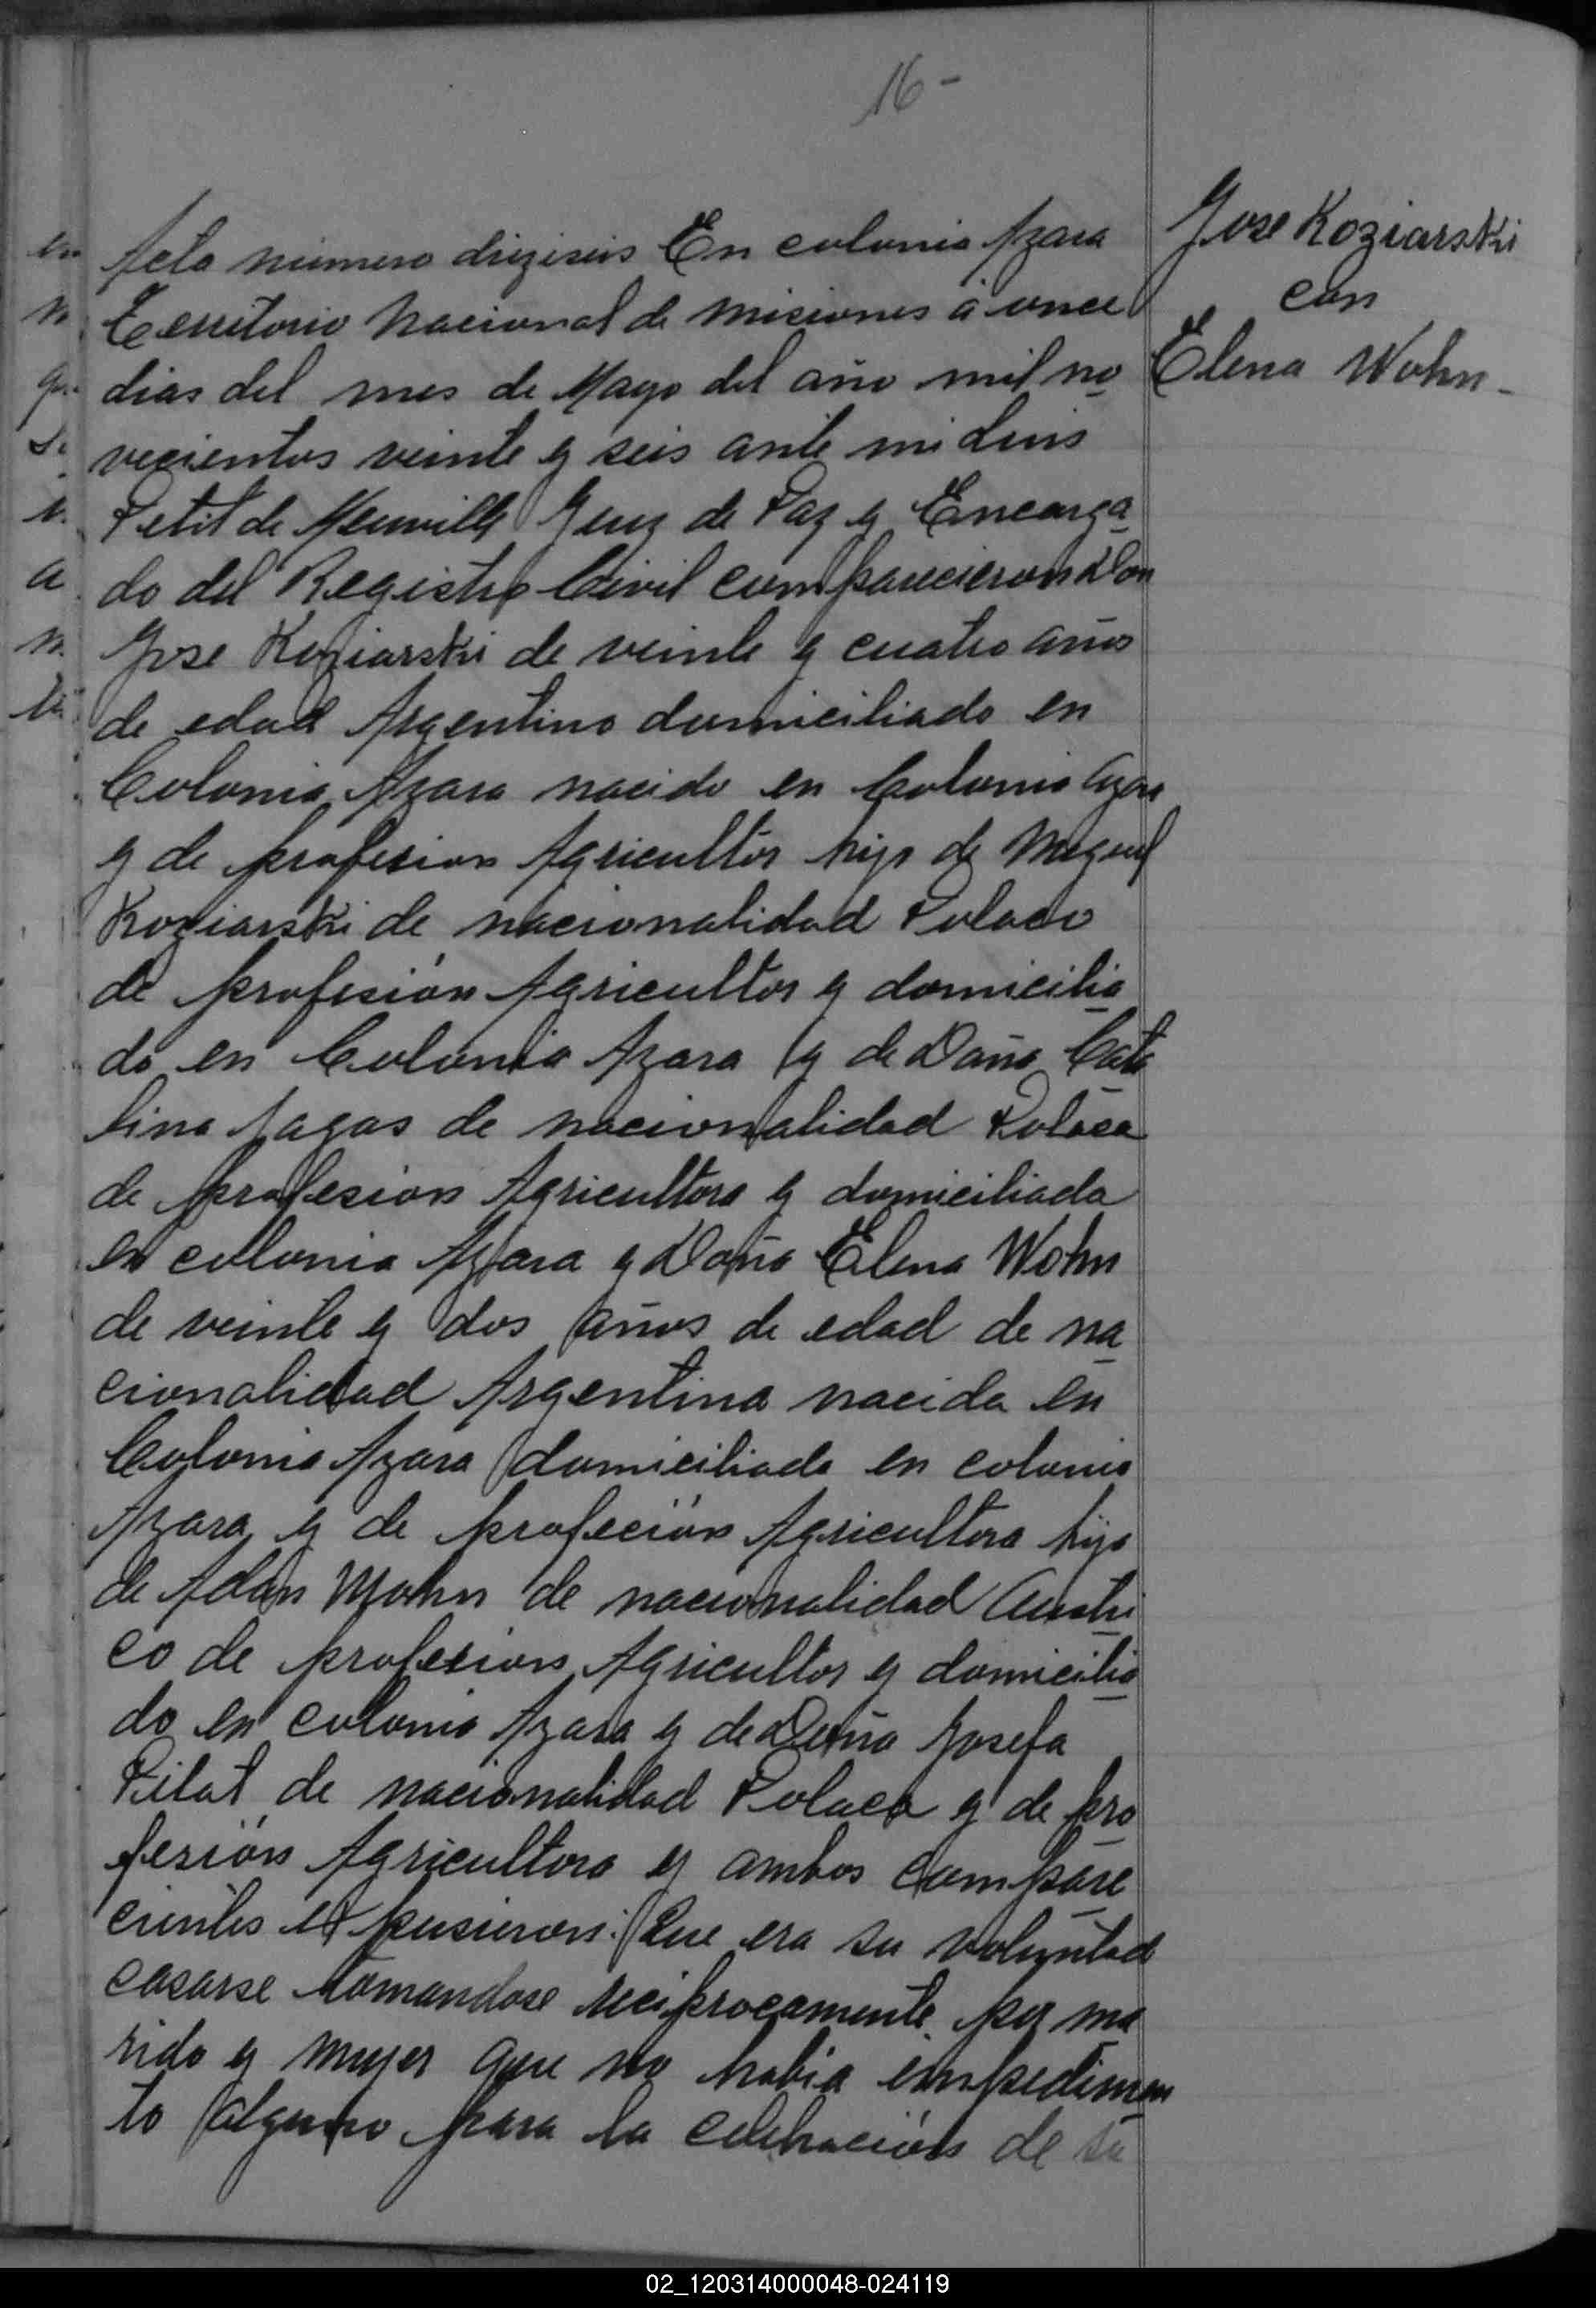 16-
Jose Koziarski
con
Elena Wohn-
Acta número diziseis En colonia Azara
Territorio Nacional de Misiones á once
dias del mes de Mayo del año mil no
vecientos veinte y seis ante mi Luis
Petit de Meurville Juez de Paz y Encarga
do del Registro Civil comparecieron Don
Jose Koziarski de veinte y cuatro años
de edad Argentino domiciliado en
Colonia Azara nacido en Colonia Azara
y de profesion Agricultor hijo de Miguel
Koziarski de nacionalidad Polaco
de profesión Agricultor y domicilia
do en Colonia Azara y de Doña Cata
lina de nacionalidad Polaca
de profesion Agricultora y domiciliada
en colonia Azara y Doña Elena Wohn
de veinte y dos años de edad de na
cionalidad Argentina nacida en
Colonia Azara domiciliada en colonia
Azara y de profeción Agricultora hija
de Adan Wohn de nacionalidad Austri
co de profesion Agricultor y domicilia
do en colonia Azara y de Doña Josefa
Pilat de nacionalidad Polaca y de pro
fesión Agricultora y ambos compare
cientes expusieron: Que era su voluntad
casarse tomandose reciprocamente por ma
rido y mujer que no habia empedimen
to alguno para la celebración de su
en
a
02_120314000048-024119